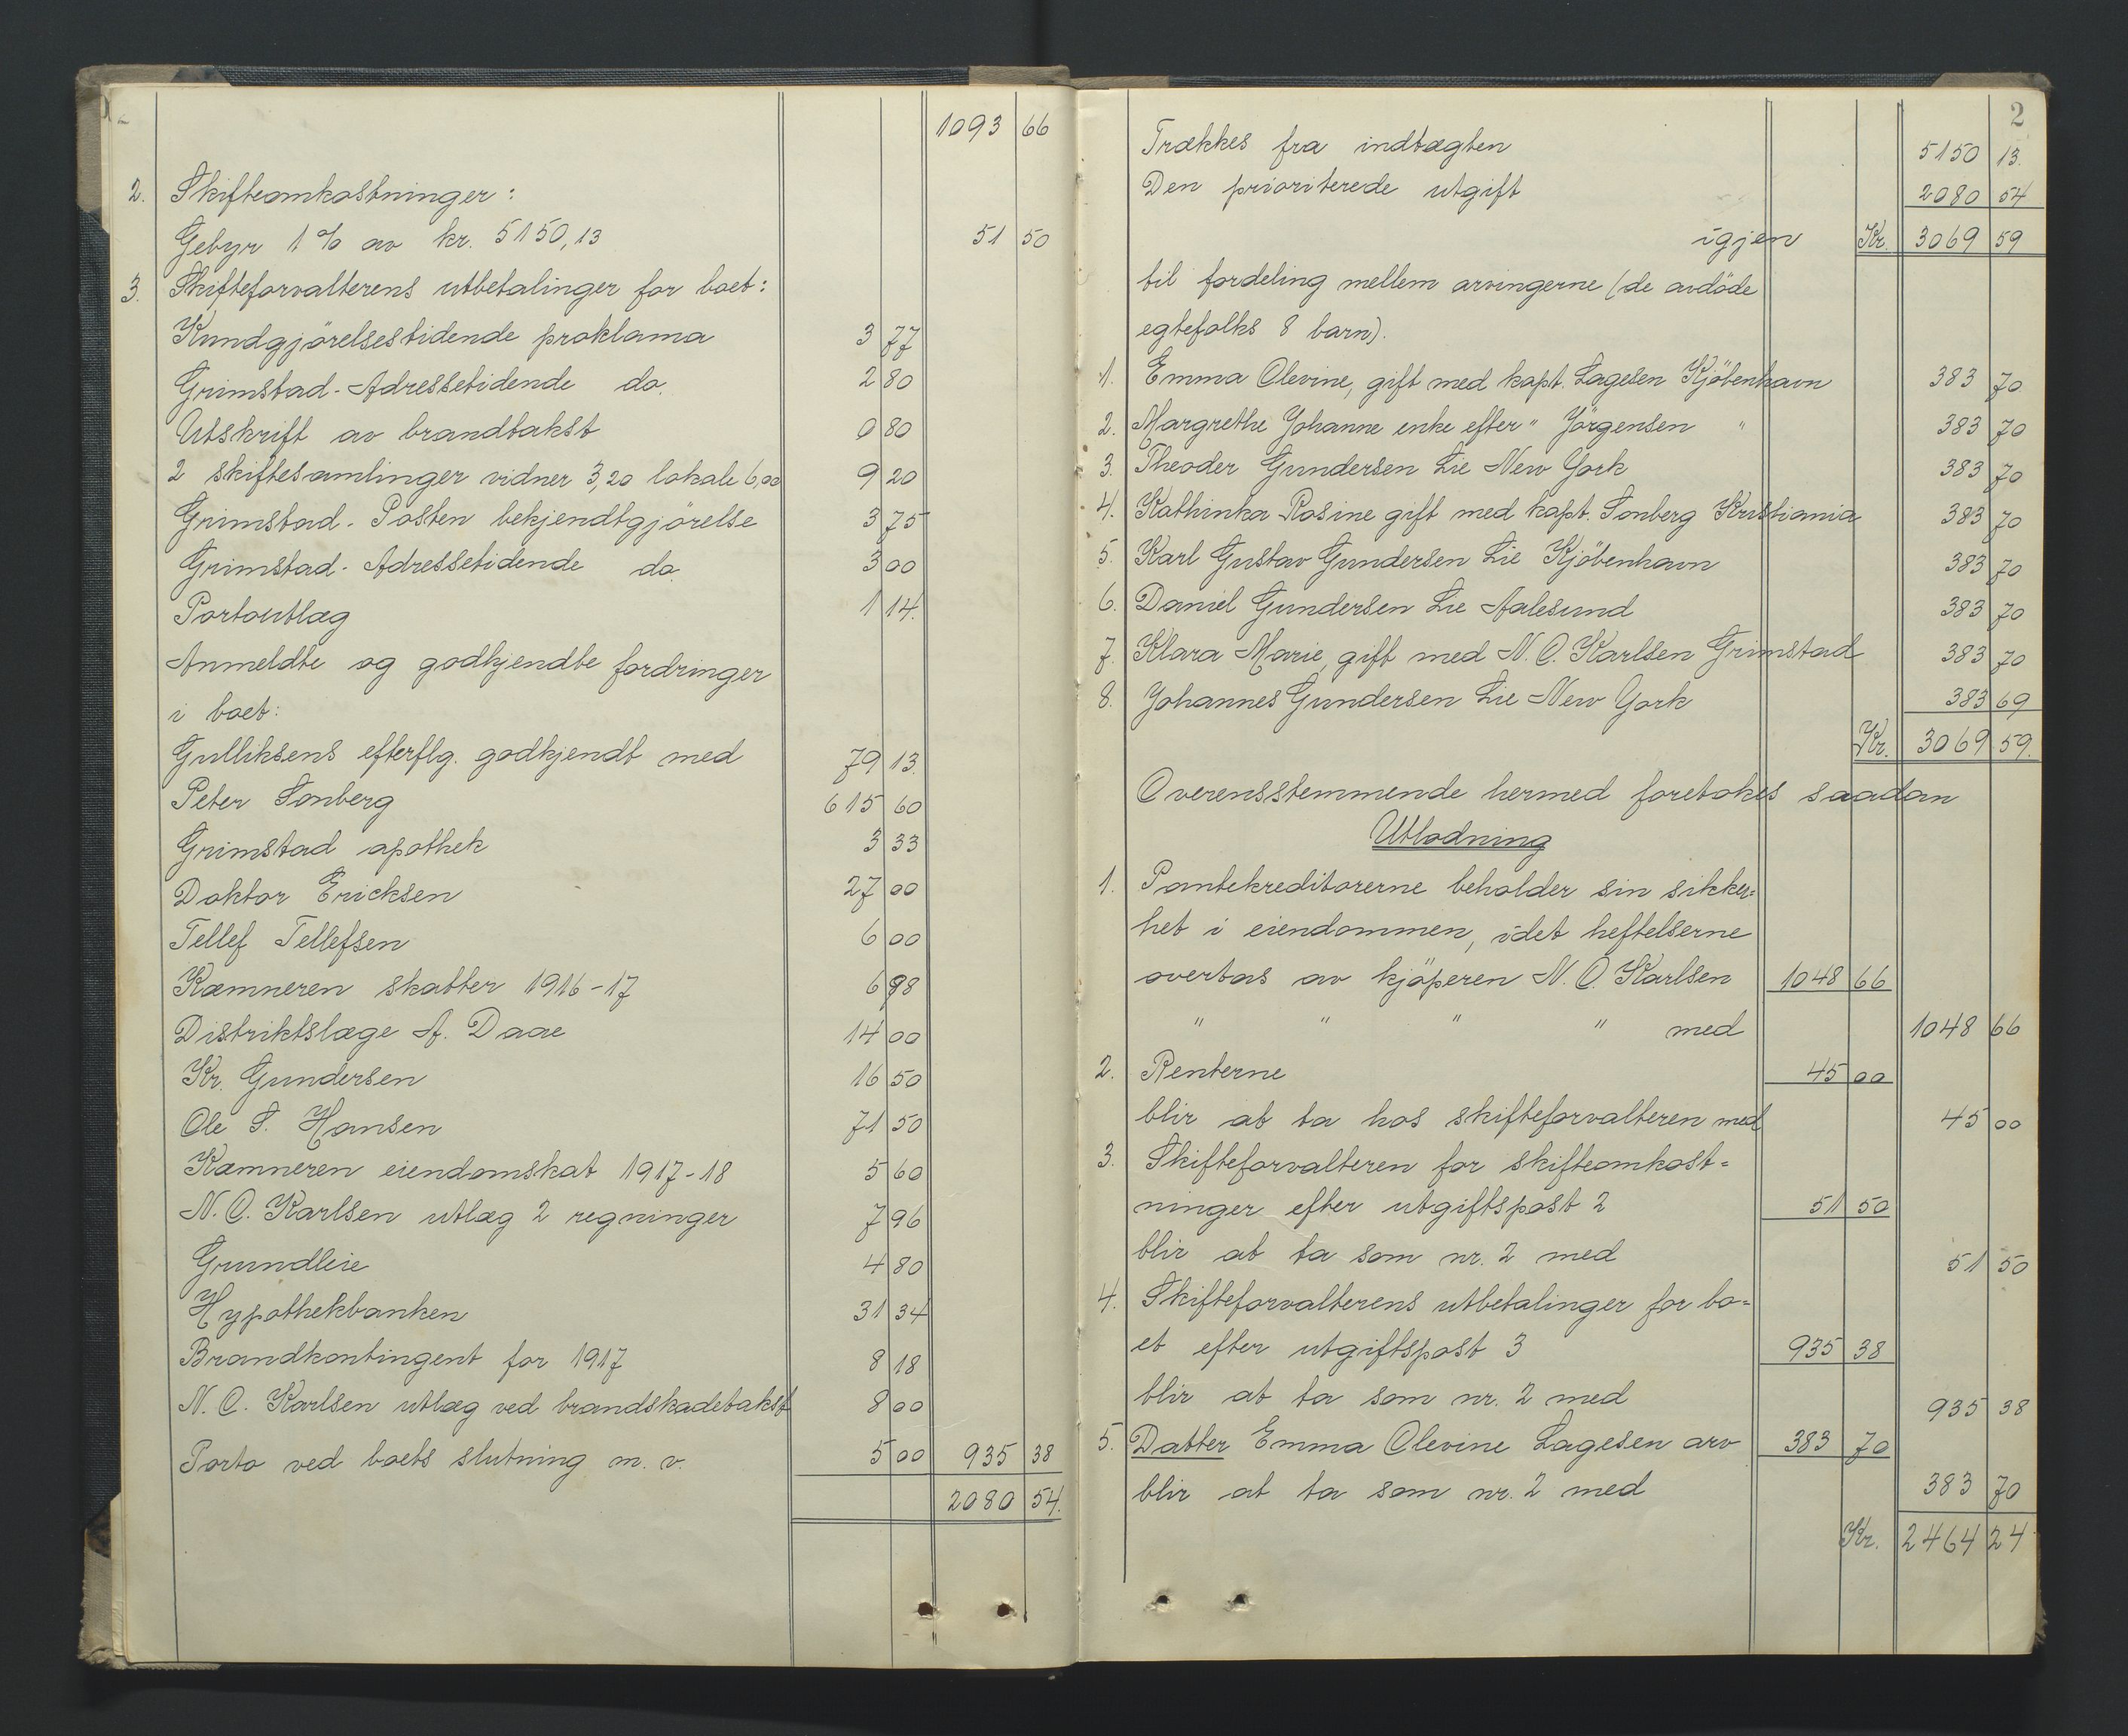 1093 66
2. Skifteomkostninger:
Gebyr 1 % av kr. 5150,13 51 50
3. Skifteforvalterens utbetalinger for boet:
Kundgjörelsestidende proklama 3 77
Grimstad-Adressetidende do. 2 80
Utskrift av brandtakst 0 80
2 skiftesamlinger vidner 3,20 lokale 6,00 9 20
Grimstad-Posten bekjendtgjörelse 3 75
Grimstad-Adressetidende do. 3 00
Portoutlæg 1 14.
Anmeldte og godkjendte fordringer
i boet:
Gulliksens efterflg. godkjendt med 79 13.
Peter Sonberg 615 60
Grimstad apothek 3 33
Doktor Ericksen 27 00
Tellef Tellefsen 6 00
Kæmneren skatter 1916-17 6 98
Distriktslæge A. Daae 14 00
Kr. Gundersen 16 50
Ole S. Hansen 71 50
Kæmneren eiendomskat 1917-18 5 60
N. O. Karlsen utlæg 2 regninger 7 96
Grundleie 4 80
Hypothekbanken 31 34
Brandkontingent for 1917 8 18
N. O. Karlsen utlæg ved brandskadetakst 8 00
Porto ved boets slutning m. v. 5 00 935 38
2080 54.
2
Trækkes fra indtægten 5150 13.
Den prioriterede utgift 2080 54
igjen Kr. 3069 59
til fordeling mellem arvingerne (de avdöde
egtefolks 8 barn).
1. Emma Olevine, gift med kapt. Lagesen Kjöbenhavn 383 70
2. Margrethe Johanne enke efter " Jörgensen " 383 70
3. Theoder Gundersen Lie New York 383 70
4. Kathinka Rosine gift med kapt. Sonberg Kristiania 383 70
5. Karl Gustav Gundersen Lie Kjöbenhavn 383 70
6. Daniel Gundersen Lie Aalesund 383 70
7. Klara Marie, gift med N. O. Karlsen Grimstad 383 70
8. Johannes Gundersen Lie New York 383 69
Kr. 3069 59.
Overensstemmende hermed foretokes saadan
Utlodning
1. Pantekreditorerne beholder sin sikker=
het i eiendommen, idet heftelserne
overtas av kjöperen N. O. Karlsen 1048 66
" " " " med 1048 66
2. Renterne 45 00
blir at ta hos skifteforvalteren med 45 00
3. Skifteforvalteren for skifteomkost=
ninger efter utgiftspost 2 51 50
blir at ta som nr. 2 med 51 50
4. Skifteforvalterens utbetalinger for bo=
et efter utgiftspost 3 935 38
blir at ta som nr. 2 med 935 38
5. Datter Emma Olevine Lagesen arv 383 70
blir at ta som nr. 2 med 383 70
Kr. 2464 24